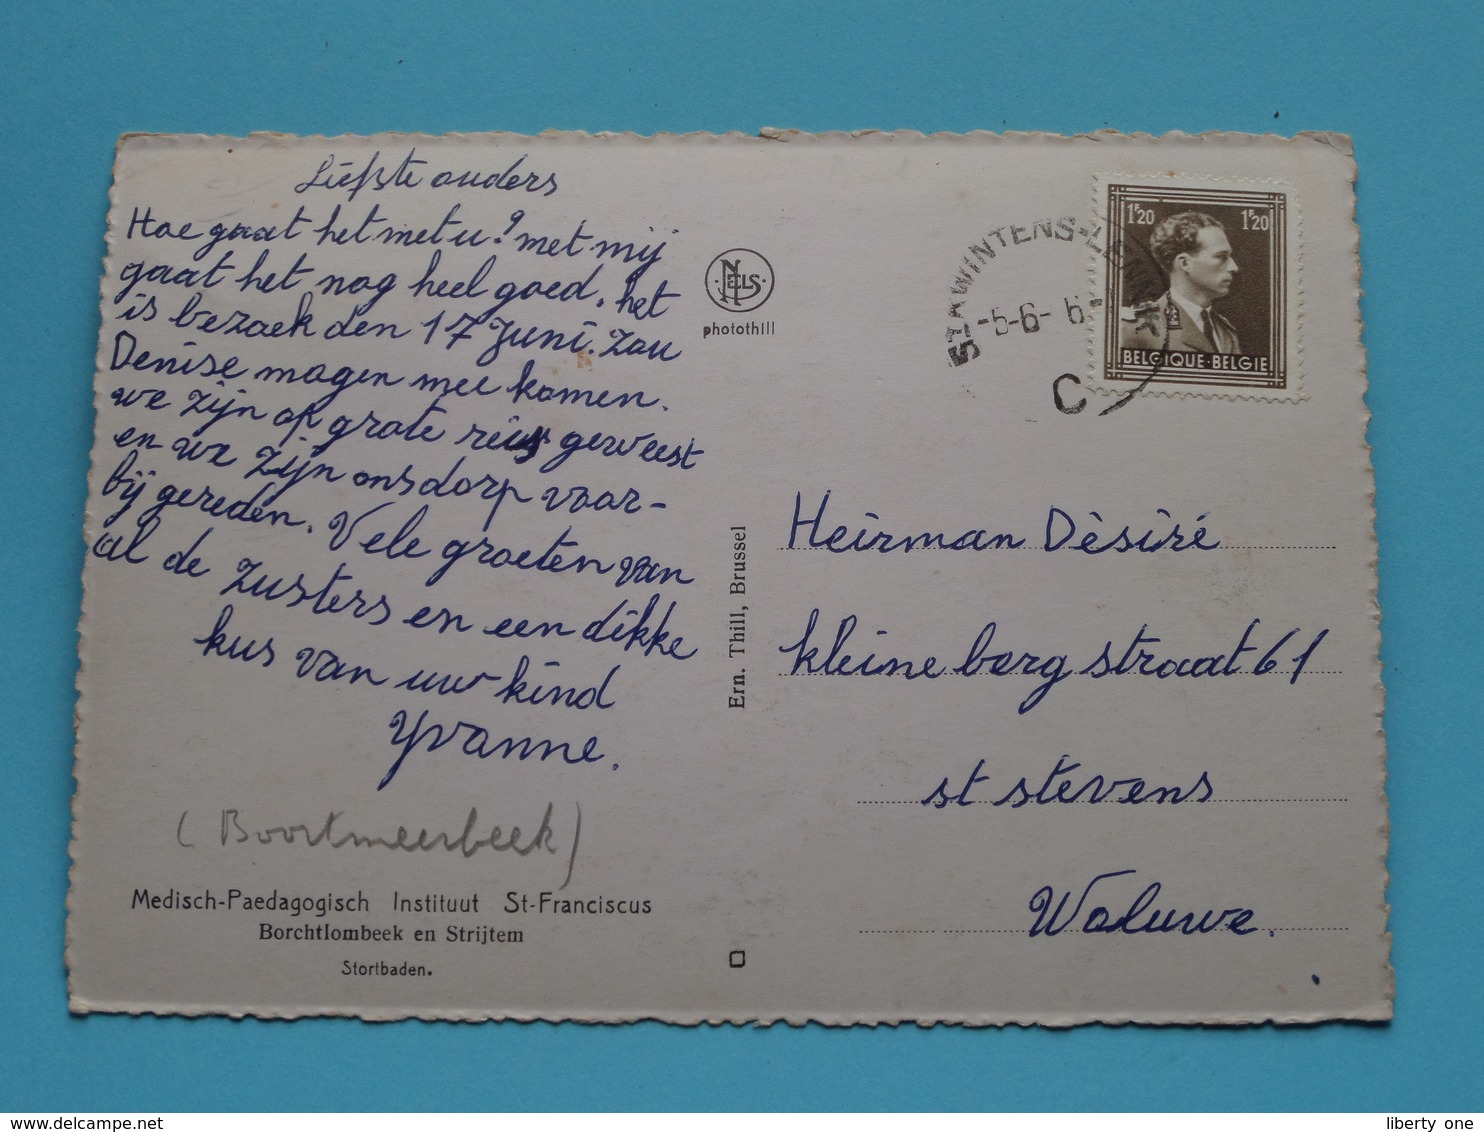 Liefste ouders
Hoe gaat het met u? met mij
gaat het nog heel goed. het
is bezoek den 17 Juni. Zou
Denise mogen mee komen.
we zijn op grote reis geweest
en we zijn ons dorp voor-
bij gereden. Vele groeten van
al de zusters en een dikke
kus van uw kind
Yvonne.
(Boortmeerbeek)
Medisch-Paedagogisch Instituut St-Franciscus
Borchtlombeek en Strijtem
Stortbaden.
NELS
photothill
Ern. Thill, Brussel
ST-KWINTENS-LENNIK
-5-6-
C
1F20 1F20
BELGIQUE-BELGIE
Heirman Dèsiré
kleine berg straat 61
st stevens
Woluwe.
liberty one